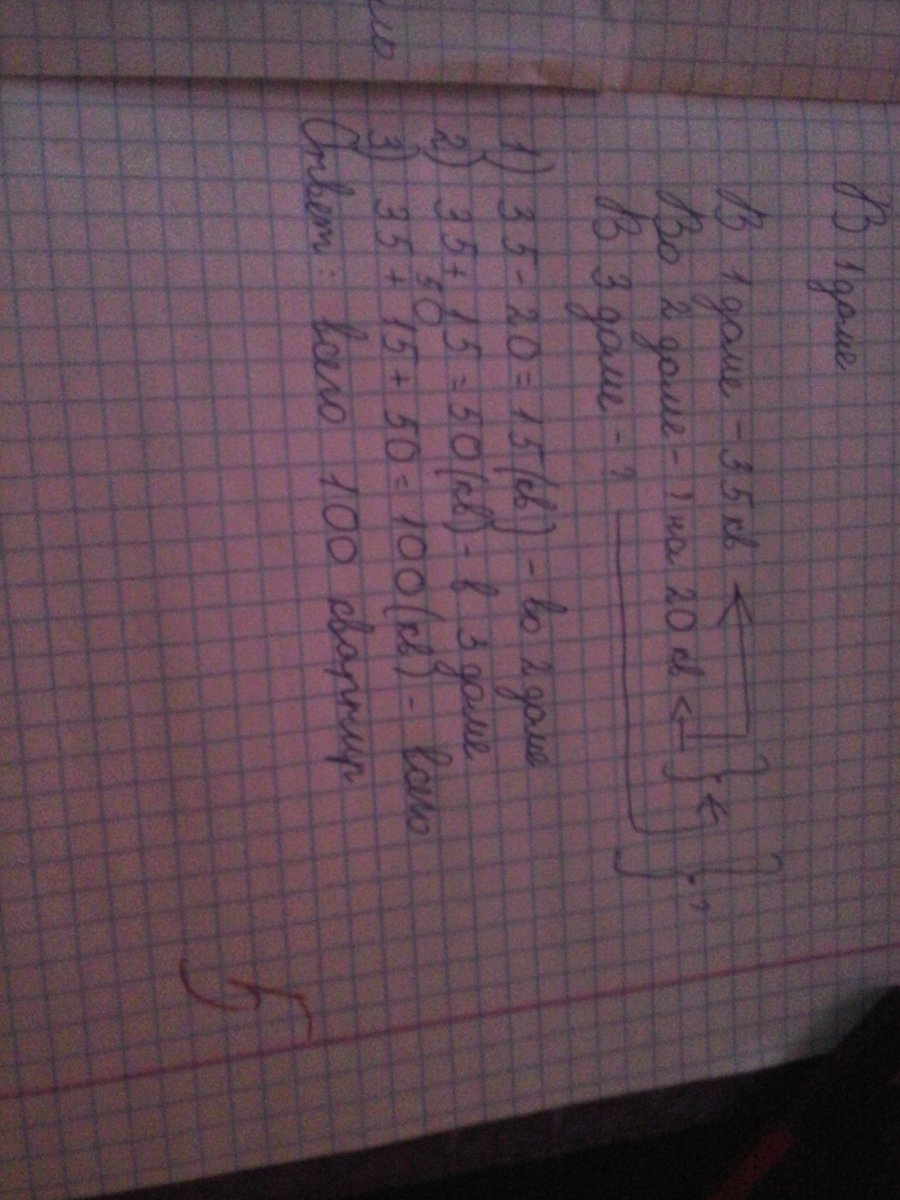 В 1 доме
В 1 доме - 35 кв
Во 2 доме - ? на 20 кв
В 3 доме - ?
?
1) 35 - 20 = 15 (кв) - во 2 доме
2) 35 + 15 = 50 (кв) - в 3 доме
50
3) 35 + 15 + 50 = 100 (кв) - всего
Ответ: всего 100 квартир
5